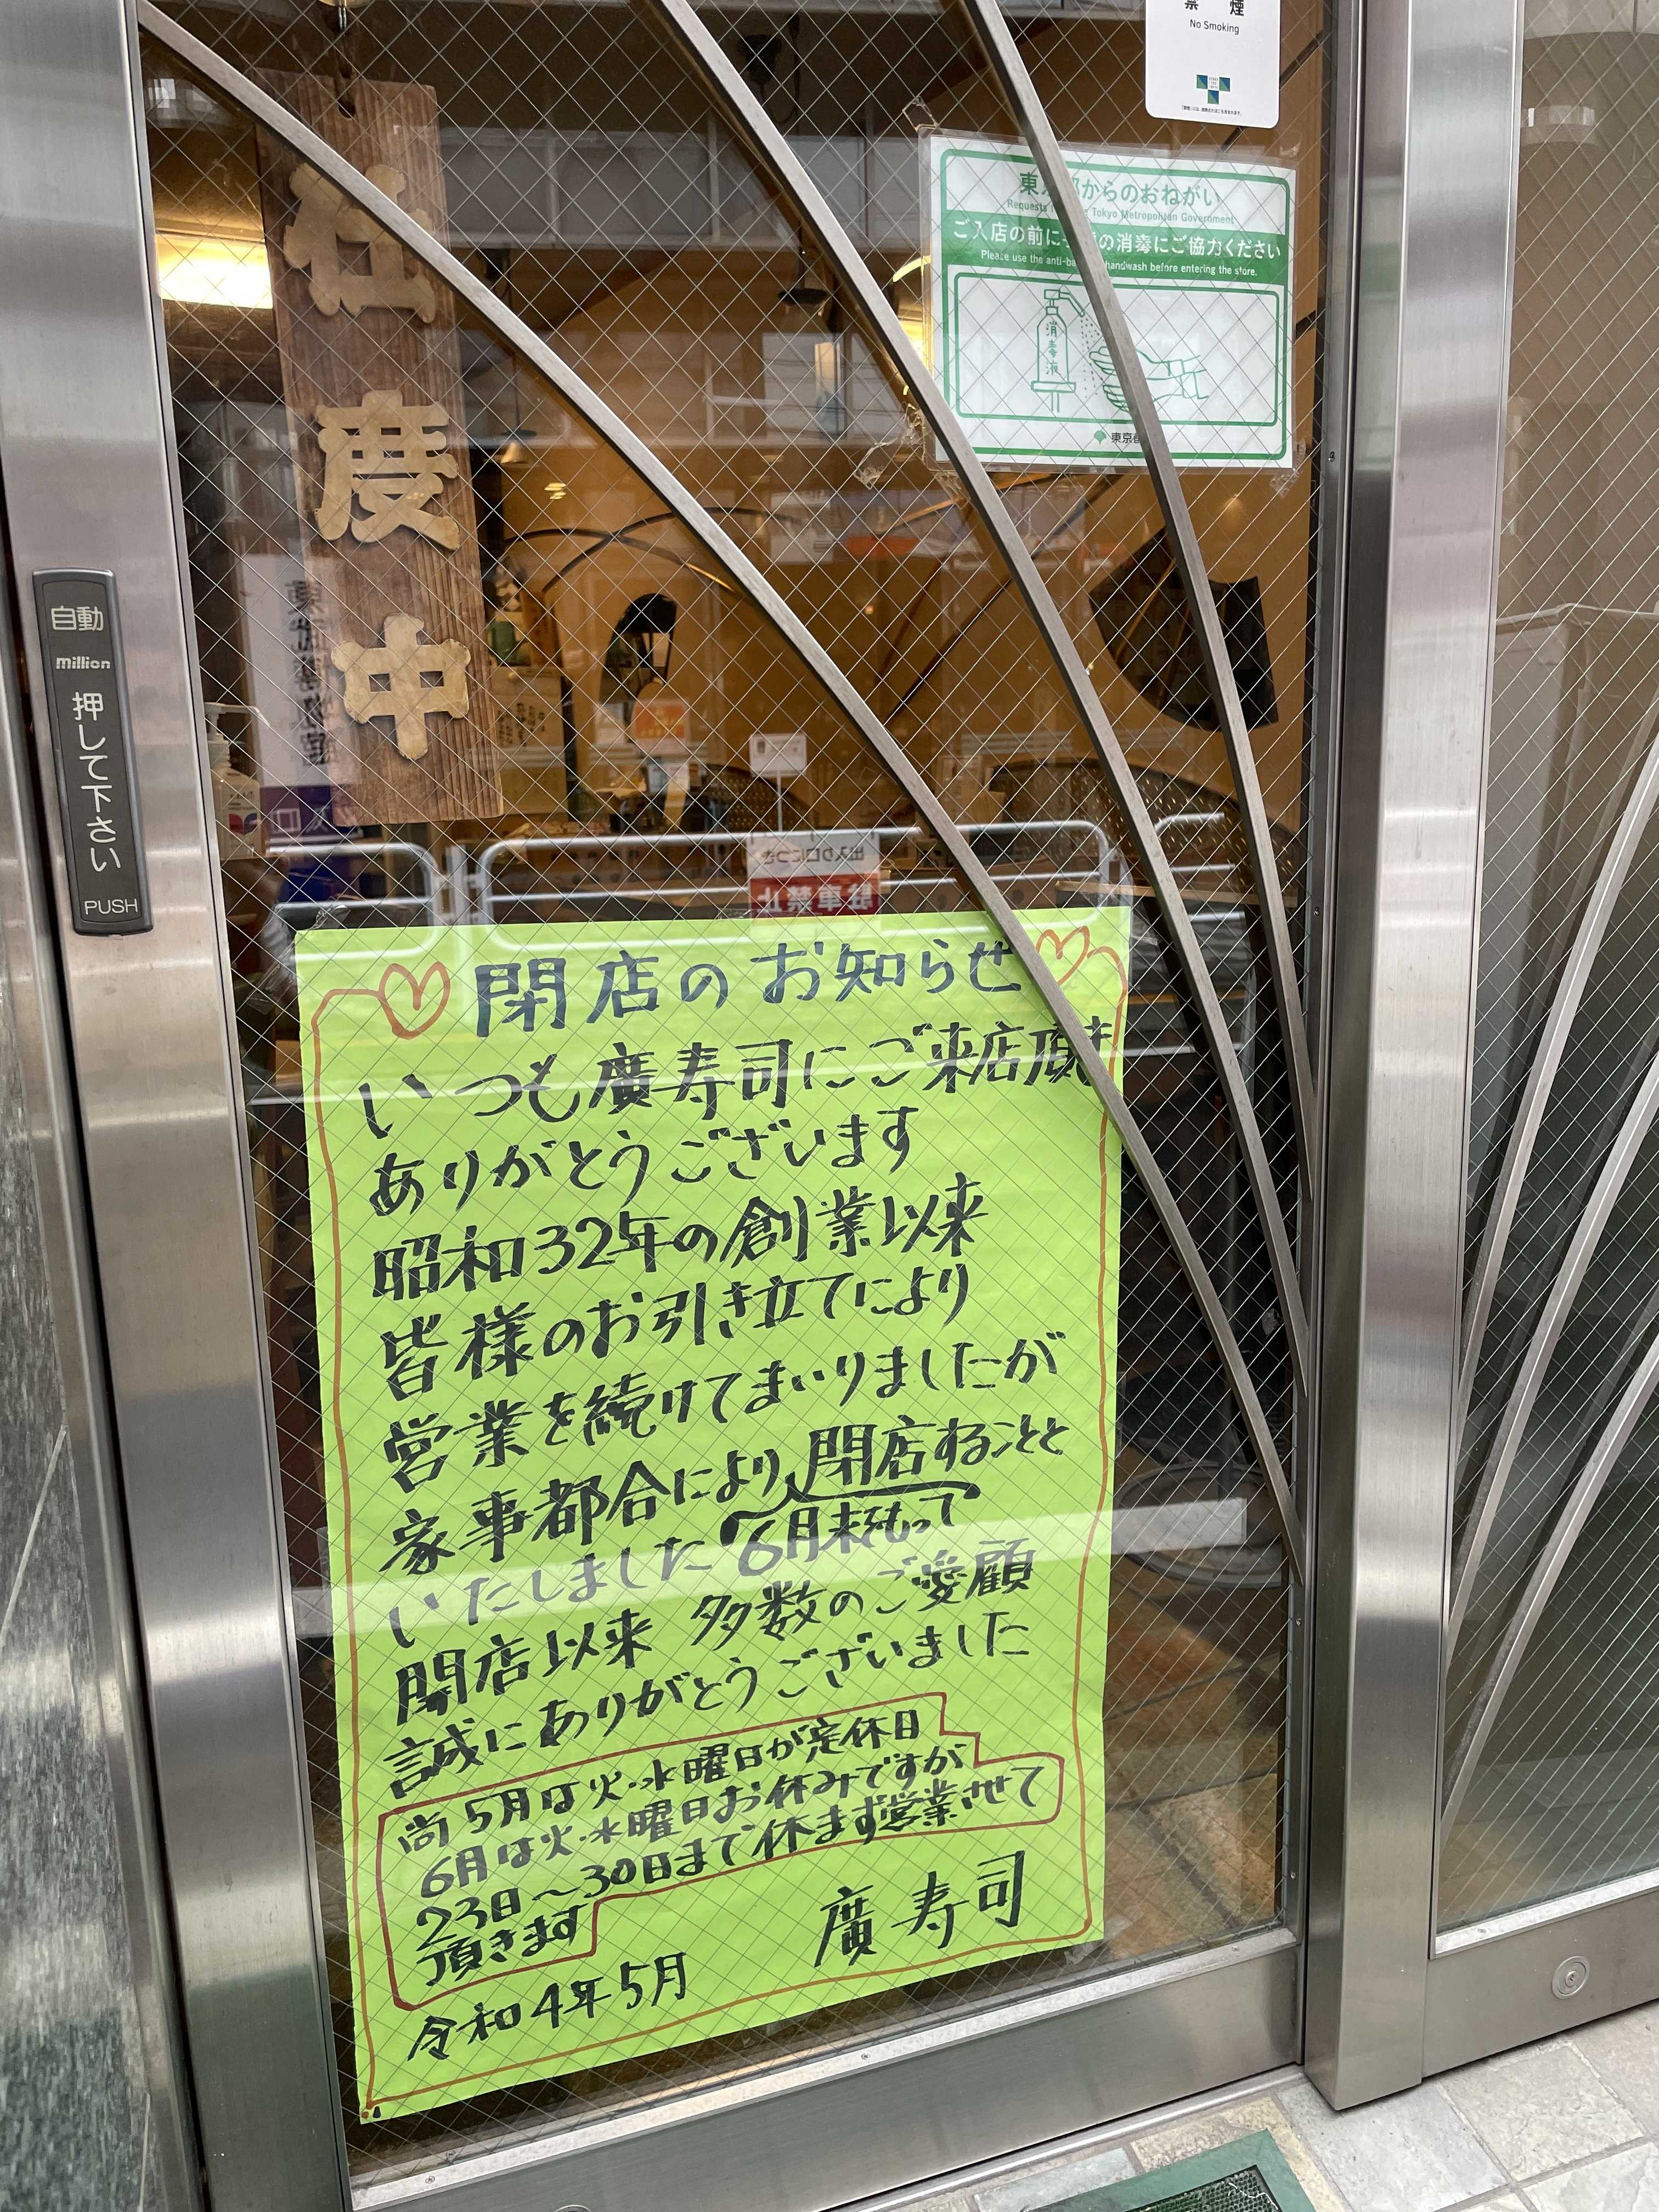 禁煙
No Smoking
東 都からのおねがい
Requests Tokyo Metropolitan Government
ご入店の前に の消毒にご協力ください
Please use the anti-ba handwash before entering the store.
消毒液
東京都
仕度中
自動
million
押して下さい
PUSH
出入り口につき
駐車禁止
閉店のお知らせ
いつも廣寿司にご来店頂き
ありがとうございます
昭和32年の創業以来
皆様のお引き立てにより
営業を続けてまいりましたが
家事都合により閉店することと
いたしました 6月末をもって
開店以来 多数のご愛顧
誠にありがとうございました
尚5月は火・水曜日が定休日
6月は火・水曜日お休みですが
23日〜30日まで休まず営業させて
頂きます
廣寿司
令和4年5月